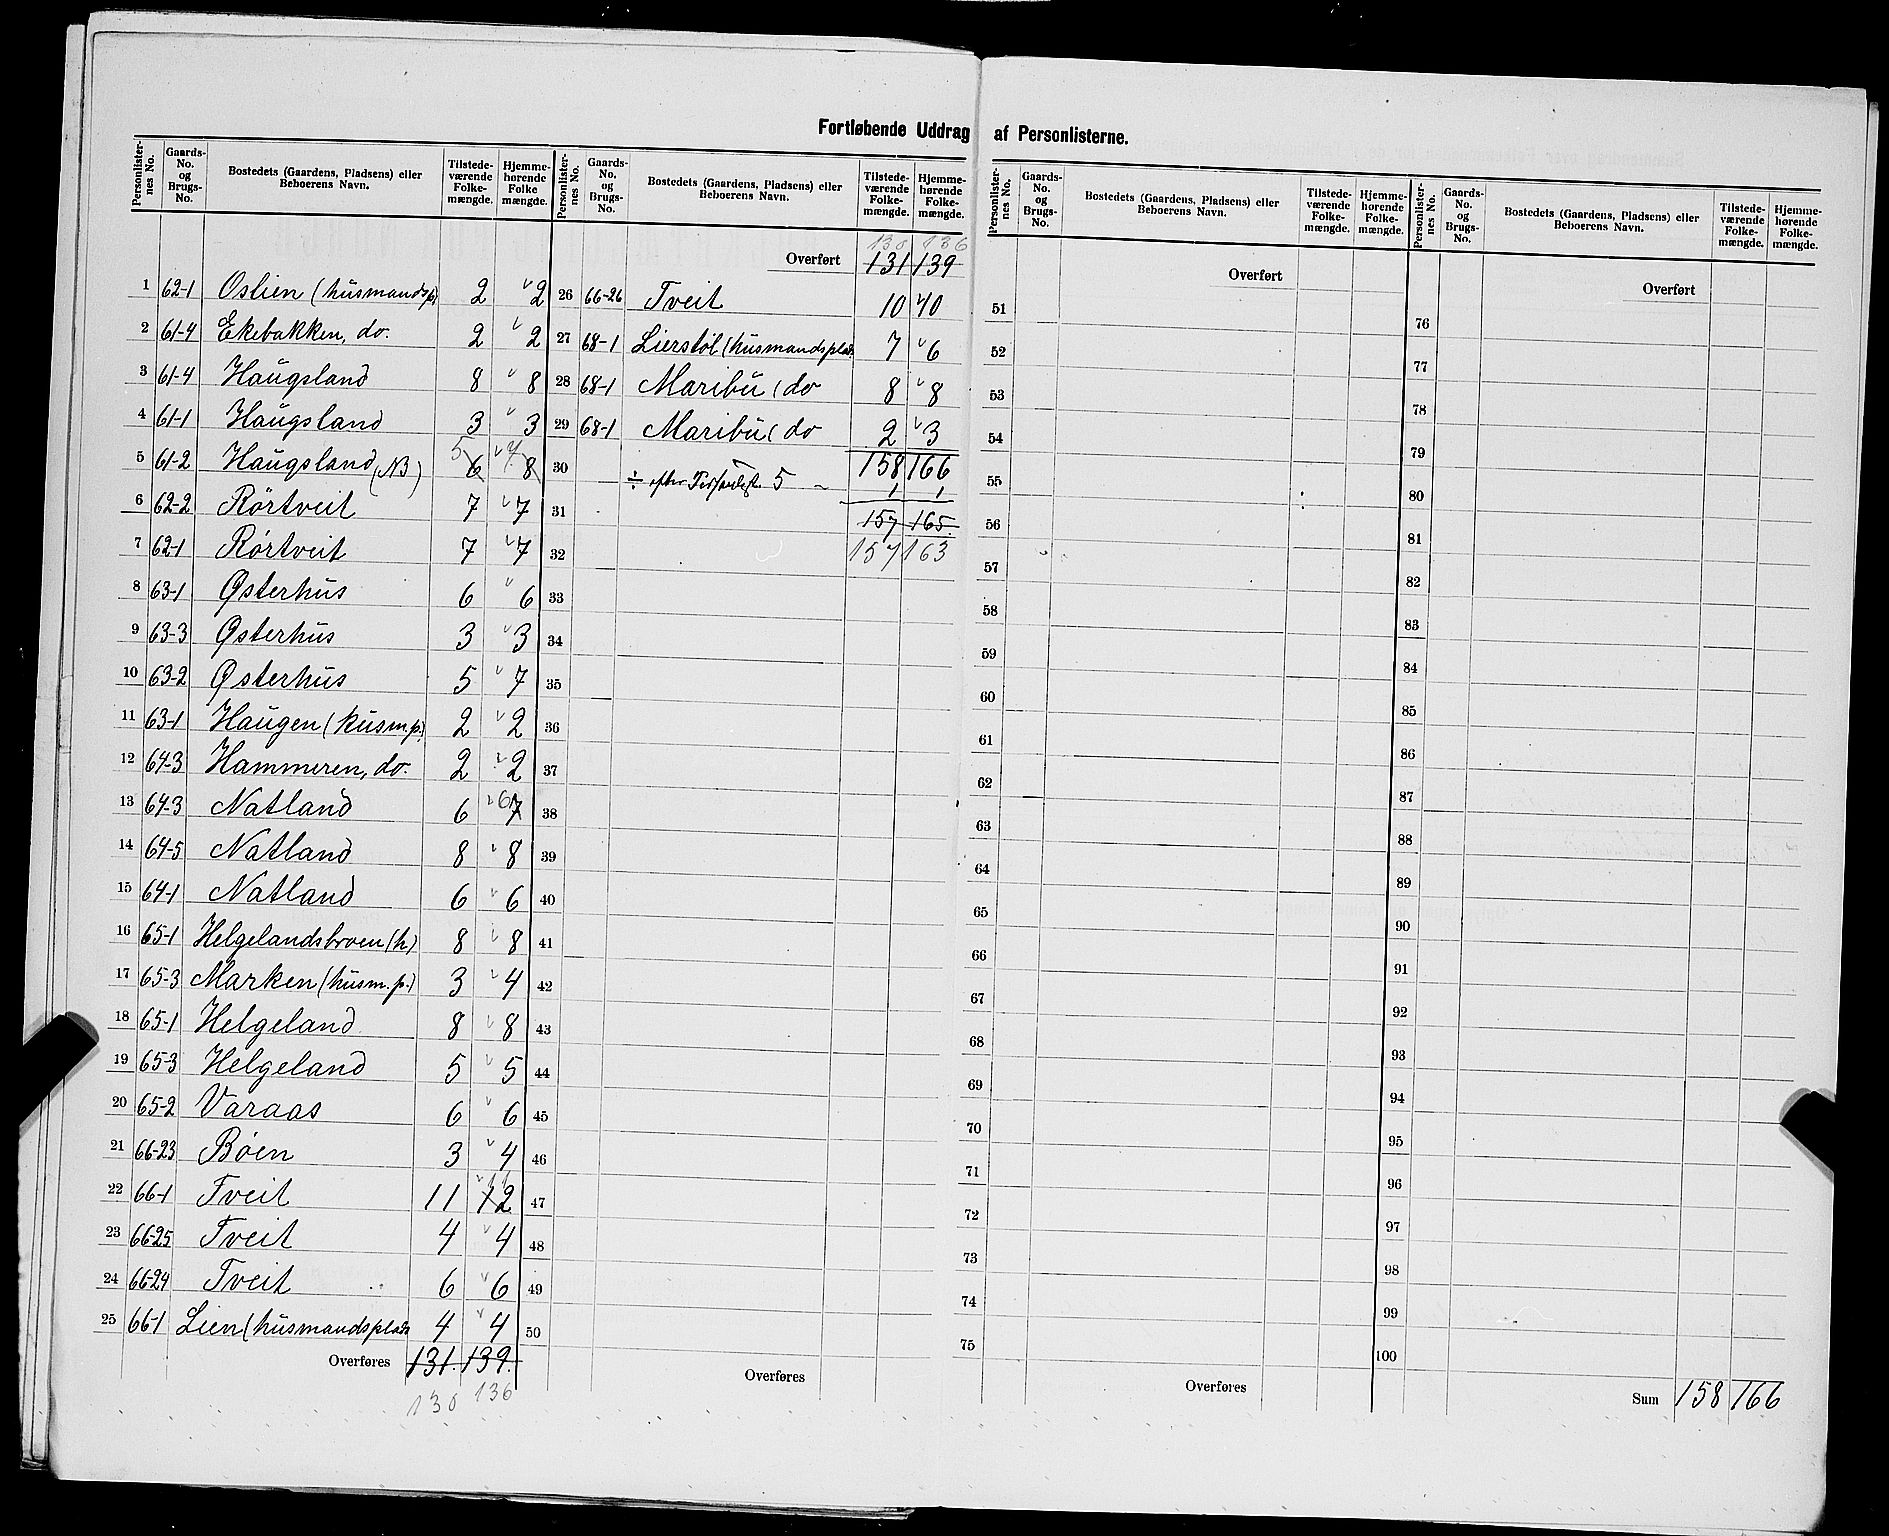 Fortløbende Uddrag af Personlisterne.
Personlister-nes No. | Gaards-No. og Brugs-No. | Bostedets (Gaardens, Pladsens) eller Beboerens Navn. | Tilstede-værende Folke-mængde. | Hjemme-hørende Folke mængde.
1 62-1 Oslien (husmandspl) 2 2
2 61-4 Ekebakken, do. 2 2
3 61-4 Haugsland 8 8
4 61-1 Haugsland 3 3
5 61-2 Haugsland (NB) 5 6 7 8
6 62-2 Rörtveit 7 7
7 62-1 Rörtveit 7 7
8 63-1 Østerhus 6 6
9 63-3 Østerhus 3 3
10 63-2 Østerhus 5 7
11 63-1 Haugen (husm.p.) 2 2
12 64-3 Hammeren, do. 2 2
13 64-3 Natland 6 6 7
14 64-5 Natland 8 8
15 64-1 Natland 6 6
16 65-1 Helgelandsbroen (h) 8 8
17 65-3 Marken (husm.p.) 3 4
18 65-1 Helgeland 8 8
19 65-3 Helgeland 5 5
20 65-2 Varaas 6 6
21 66-23 Böen 3 4
22 66-1 Tveit 11 11 12
23 66-25 Tveit 4 4
24 66-24 Tveit 6 6
25 66-1 Lien (husmandsplads 4 4
Overføres 131. 139.
130 136
Personlister-nes No. | Gaards-No. og Brugs-No. | Bostedets (Gaardens, Pladsens) eller Beboerens Navn. | Tilstede-værende Folke-mængde. | Hjemme-hørende Folke-mængde.
130 136
Overført 131 139
26 66-26 Tveit 10 10
27 68-1 Lierstöl (husmandsplads 7 6
28 68-1 Maribu (do 8 8
29 68-1 Maribu (do 2 3
30 158 166
÷ efter 5 - 1 1
31 157 165
32 157 163
33
34
35
36
37
38
39
40
41
42
43
44
45
46
47
48
49
50
Overføres
Personlister-nes No. | Gaards-No. og Brugs-No. | Bostedets (Gaardens, Pladsens) eller Beboerens Navn. | Tilstede-værende Folke-mængde. | Hjemme-hørende Folke-mængde.
Overført
51
52
53
54
55
56
57
58
59
60
61
62
63
64
65
66
67
68
69
70
71
72
73
74
75
Overføres
Personlister-nes No. | Gaards-No. og Brugs-No. | Bostedets (Gaardens, Pladsens) eller Beboerens Navn. | Tilstede-værende Folke-mængde. | Hjemme-hørende Folke-mængde.
Overført
76
77
78
79
80
81
82
83
84
85
86
87
88
89
90
91
92
93
94
95
96
97
98
99
100
Sum 158 166